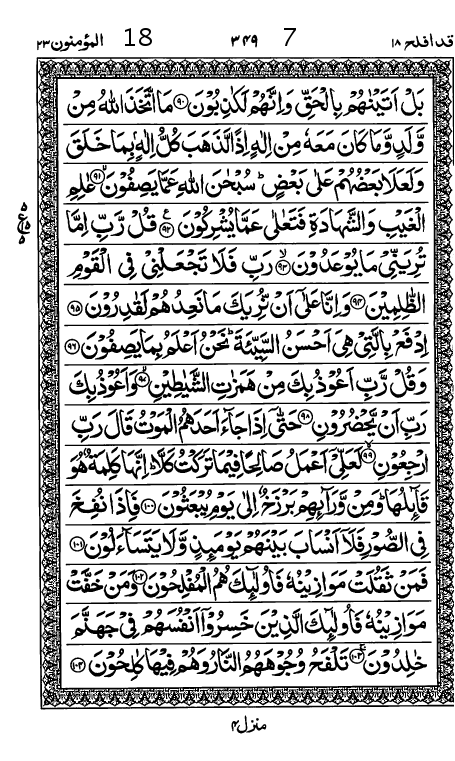 قد افلح ١٨ 7 ٣٤٩ 18 المؤمنون ٢٣
بَلْ اَتَيْنٰهُمْ بِالْحَقِّ وَاِنَّهُمْ لَكٰذِبُوْنَ ﴿٩٠﴾ مَا اتَّخَذَ اللّٰهُ مِنْ
وَّلَدٍ وَّمَا كَانَ مَعَهٗ مِنْ اِلٰهٍ اِذًا لَّذَهَبَ كُلُّ اِلٰهٍۭ بِمَا خَلَقَ
وَلَعَلَا بَعْضُهُمْ عَلٰى بَعْضٍ ؕ سُبْحٰنَ اللّٰهِ عَمَّا يَصِفُوْنَ ﴿٩١﴾ۙ عٰلِمِ
الْغَيْبِ وَالشَّهَادَةِ فَتَعٰلٰى عَمَّا يُشْرِكُوْنَ ﴿٩٢﴾ۧ قُلْ رَّبِّ اِمَّا
تُرِيَنِّيْ مَا يُوْعَدُوْنَ ﴿٩٣﴾ۙ رَبِّ فَلَا تَجْعَلْنِيْ فِي الْقَوْمِ
الظّٰلِمِيْنَ ﴿٩٤﴾ وَاِنَّا عَلٰٓى اَنْ نُّرِيَكَ مَا نَعِدُهُمْ لَقٰدِرُوْنَ ﴿٩٥﴾
اِدْفَعْ بِالَّتِيْ هِيَ اَحْسَنُ السَّيِّئَةَ ؕ نَحْنُ اَعْلَمُ بِمَا يَصِفُوْنَ ﴿٩٦﴾
وَقُلْ رَّبِّ اَعُوْذُ بِكَ مِنْ هَمَزٰتِ الشَّيٰطِيْنِ ﴿٩٧﴾ۙ وَاَعُوْذُ بِكَ
رَبِّ اَنْ يَّحْضُرُوْنِ ﴿٩٨﴾ حَتّٰٓى اِذَا جَآءَ اَحَدَهُمُ الْمَوْتُ قَالَ رَبِّ
ارْجِعُوْنِ ﴿٩٩﴾ۙ لَعَلِّيْٓ اَعْمَلُ صَالِحًا فِيْمَا تَرَكْتُ كَلَّا ؕ اِنَّهَا كَلِمَةٌ هُوَ
قَآئِلُهَا ؕ وَمِنْ وَّرَآئِهِمْ بَرْزَخٌ اِلٰى يَوْمِ يُبْعَثُوْنَ ﴿١٠٠﴾ فَاِذَا نُفِخَ
فِي الصُّوْرِ فَلَآ اَنْسَابَ بَيْنَهُمْ يَوْمَئِذٍ وَّلَا يَتَسَآءَلُوْنَ ﴿١٠١﴾
فَمَنْ ثَقُلَتْ مَوَازِيْنُهٗ فَاُولٰٓئِكَ هُمُ الْمُفْلِحُوْنَ ﴿١٠٢﴾ وَمَنْ خَفَّتْ
مَوَازِيْنُهٗ فَاُولٰٓئِكَ الَّذِيْنَ خَسِرُوْٓا اَنْفُسَهُمْ فِيْ جَهَنَّمَ
خٰلِدُوْنَ ﴿١٠٣﴾ۚ تَلْفَحُ وُجُوْهَهُمُ النَّارُ وَهُمْ فِيْهَا كٰلِحُوْنَ ﴿١٠٤﴾
منزل ٤